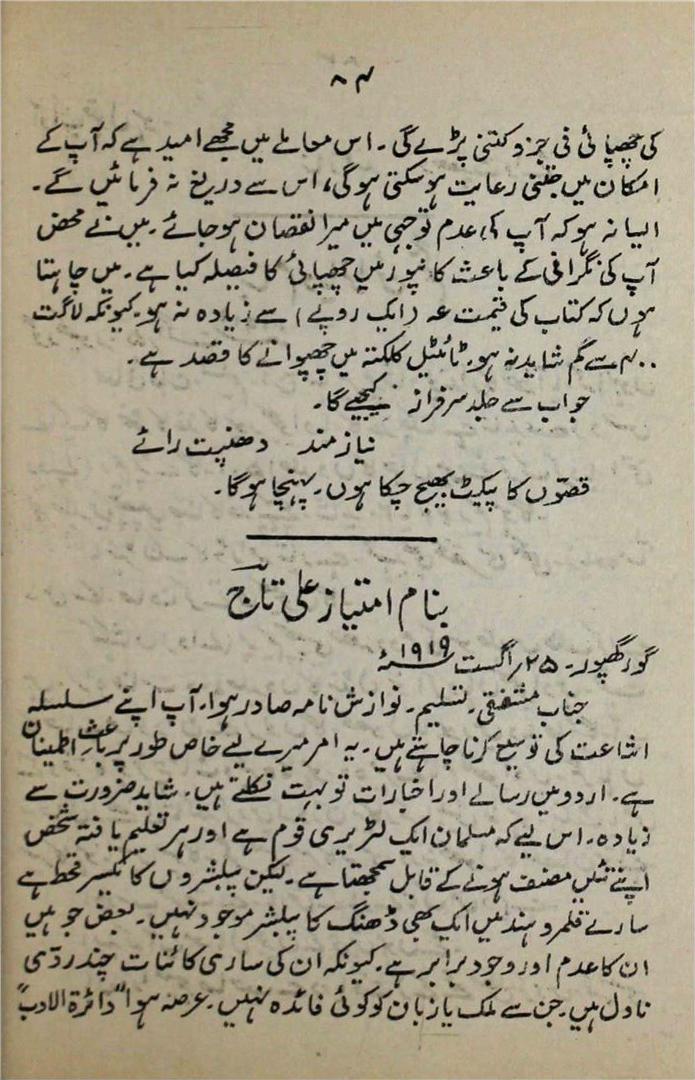 ۸۴
کی چھپائی فی جزو کتنی پڑے گی ۔ اس معاملے میں مجھے امید ہے کہ آپ کے
امکان میں جتنی رعایت ہو سکتی ہوگی، اس سے دریغ نہ فرمائیں گے ۔
ایسا نہ ہو کہ آپ کی عدم توجہی میں میرا نقصان ہو جائے ۔ میں نے محض
آپ کی نگرانی کے باعث کانپور میں چھپائی کا فیصلہ کیا ہے ۔ میں چاہتا
ہوں کہ کتاب کی قیمت عہ (ایک روپے) سے زیادہ نہ ہو۔ کیونکہ لاگت
۴۰۰ سے کم شاید نہ ہو۔ ٹائیٹل کلکتہ میں چھپوانے کا قصد ہے ۔
جواب سے جلد سرفراز کیجیے گا۔
نیازمند دھنپت رائے
قصوں کا پیکٹ بھیج چکا ہوں ۔ پہنچا ہوگا۔
بنام امتیاز علی تاجؔ
گورکھپور۔ ۲۵؍ اگست ۱۹۱۹ء
جناب مشفقی۔ تسلیم۔ نوازش نامہ صادر ہوا۔ آپ اپنے سلسلہ
اشاعت کی توسیع کرنا چاہتے ہیں ۔ یہ امر میرے لیے خاص طور پر باعثِ اطمینان
ہے ۔ اردو میں رسالے اور اخبارات تو بہت نکلتے ہیں ۔ شاید ضرورت سے
زیادہ ۔ اس لیے کہ مسلمان ایک لٹریری قوم ہے اور ہر تعلیم یافتہ شخص
اپنے تئیں مصنف ہونے کے قابل سمجھتا ہے ۔ لیکن پبلشروں کا یکسر قحط ہے
سارے قلمرو ہند میں ایک بھی ڈھنگ کا پبلشر موجود نہیں ۔ بعض جو ہیں
ان کا عدم اور وجود برابر ہے ۔ کیونکہ ان کی ساری کائنات چند ردّی
ناول ہیں ۔ جن سے ملک یا زبان کو کوئی فائدہ نہیں ۔ عرصہ ہوا "دائرة الادب"